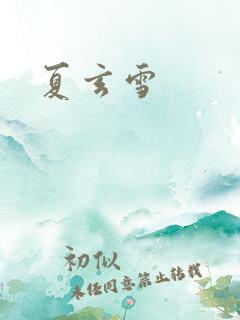 夏玄雪
初似
未经同意禁止转载